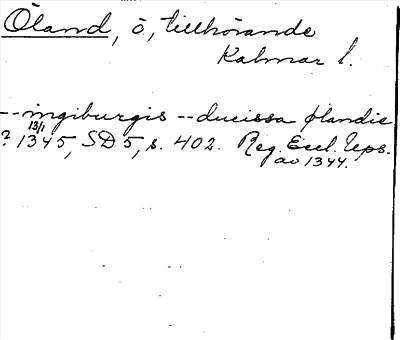 Öland, ö, tillhörande
Kalmar l.
-- ingiburgis -- ducissa ølandie
? 13/1 1345, SD 5, s. 402. Reg. Eccl. Ups.
av 1344.